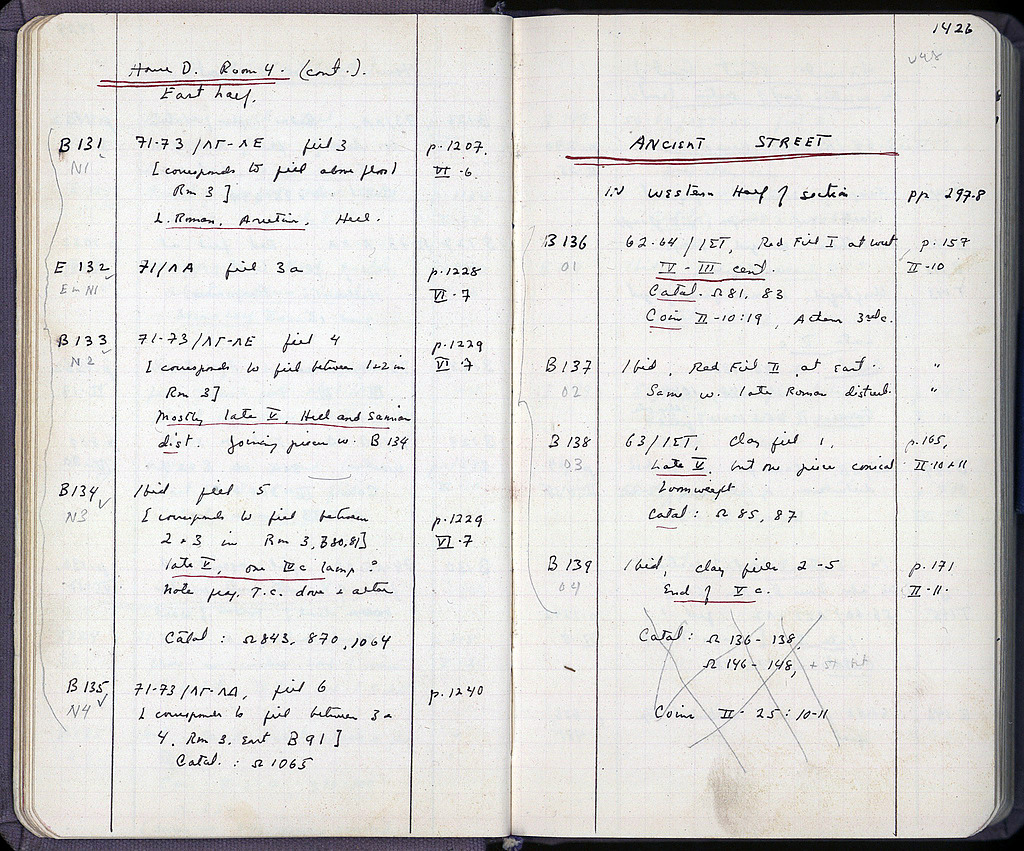 House D. Room 4. (cont.).
East half.
B 131 71-73/ΛΓ-ΛE fill 3 p. 1207.
N1 [corresponds to fill above floor VI · 6
Rm 3]
L. Roman, Arretine. Hell.
E 132 71/ΛA fill 3a p. 1228
E in N1 VI · 7
B 133 71-73/ΛΓ-ΛE fill 4 p. 1229
N2 [corresponds to fill between 1+2 in VI · 7
Rm 3]
Mostly late V, Hell and Samian
dist. Joining pieces w. B 134
B 134 Ibid fill 5
N3 [corresponds to fill between p. 1229
2 + 3 in Rm 3, B80,81] VI · 7
late V, one IV c lamp?
Note frag. T.C. dove + actor
Catal : Ω 843, 870, 1064
B 135 71-73/ΛΓ-ΛΔ, fill 6 p. 1240
N4 [corresponds to fill between 3a
4. Rm 3. East B 91]
Catal. : Ω 1065
1426
V48
ANCIENT STREET
IN Western Half of section. pp 297-8
B 136 62-64/ΙΣΤ, Red Fill I at west p. 157
01 IV - III cent. II-10
Catal. Ω 81, 83
Coin II-10:19, Athens 3rd c.
B 137 Ibid, Red Fill II, at East. "
02 Same w. late Roman disturb. "
B 138 63/ΙΣΤ, Clay fill 1, p. 165,
03 Late V, but one piece conical II·10+11
Loomweight
Catal : Ω 85, 87
B 139 Ibid, clay fills 2-5 p. 171
04 End of V c. II-11.
Catal : Ω 136-138,
Ω 146-148,
Coins II-25 : 10-11